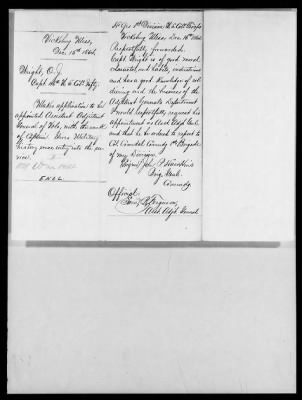 Vicksburg Miss,
Dec. 15th 1864.
Wright, O. J.
Capt. 4th U. S. Col'd Infty.
Makes application to be
appointed Assistant Adjutant
General of Vols, with the rank
of Captain. Gives Military
history since entry into the ser-
vice.
ENCL
Hd Qrs 1st Division U. S. Col'd Troops
Vicksburg Miss Dec 16th 1864.
Respectfully forwarded.
Capt Wright is of good moral
character, and habits, industrious
and has a good knowledge of
and the business of the
Adjutant Generals Department
I would respectfully request his
appointment as Asst Adjt Genl.
and that he be ordered to report to
Col 1st Brigade
of my Division
Signed John P. Hawkins
Brig. Genl.
Comndg.
Official
Ferguson
Asst Adjt General